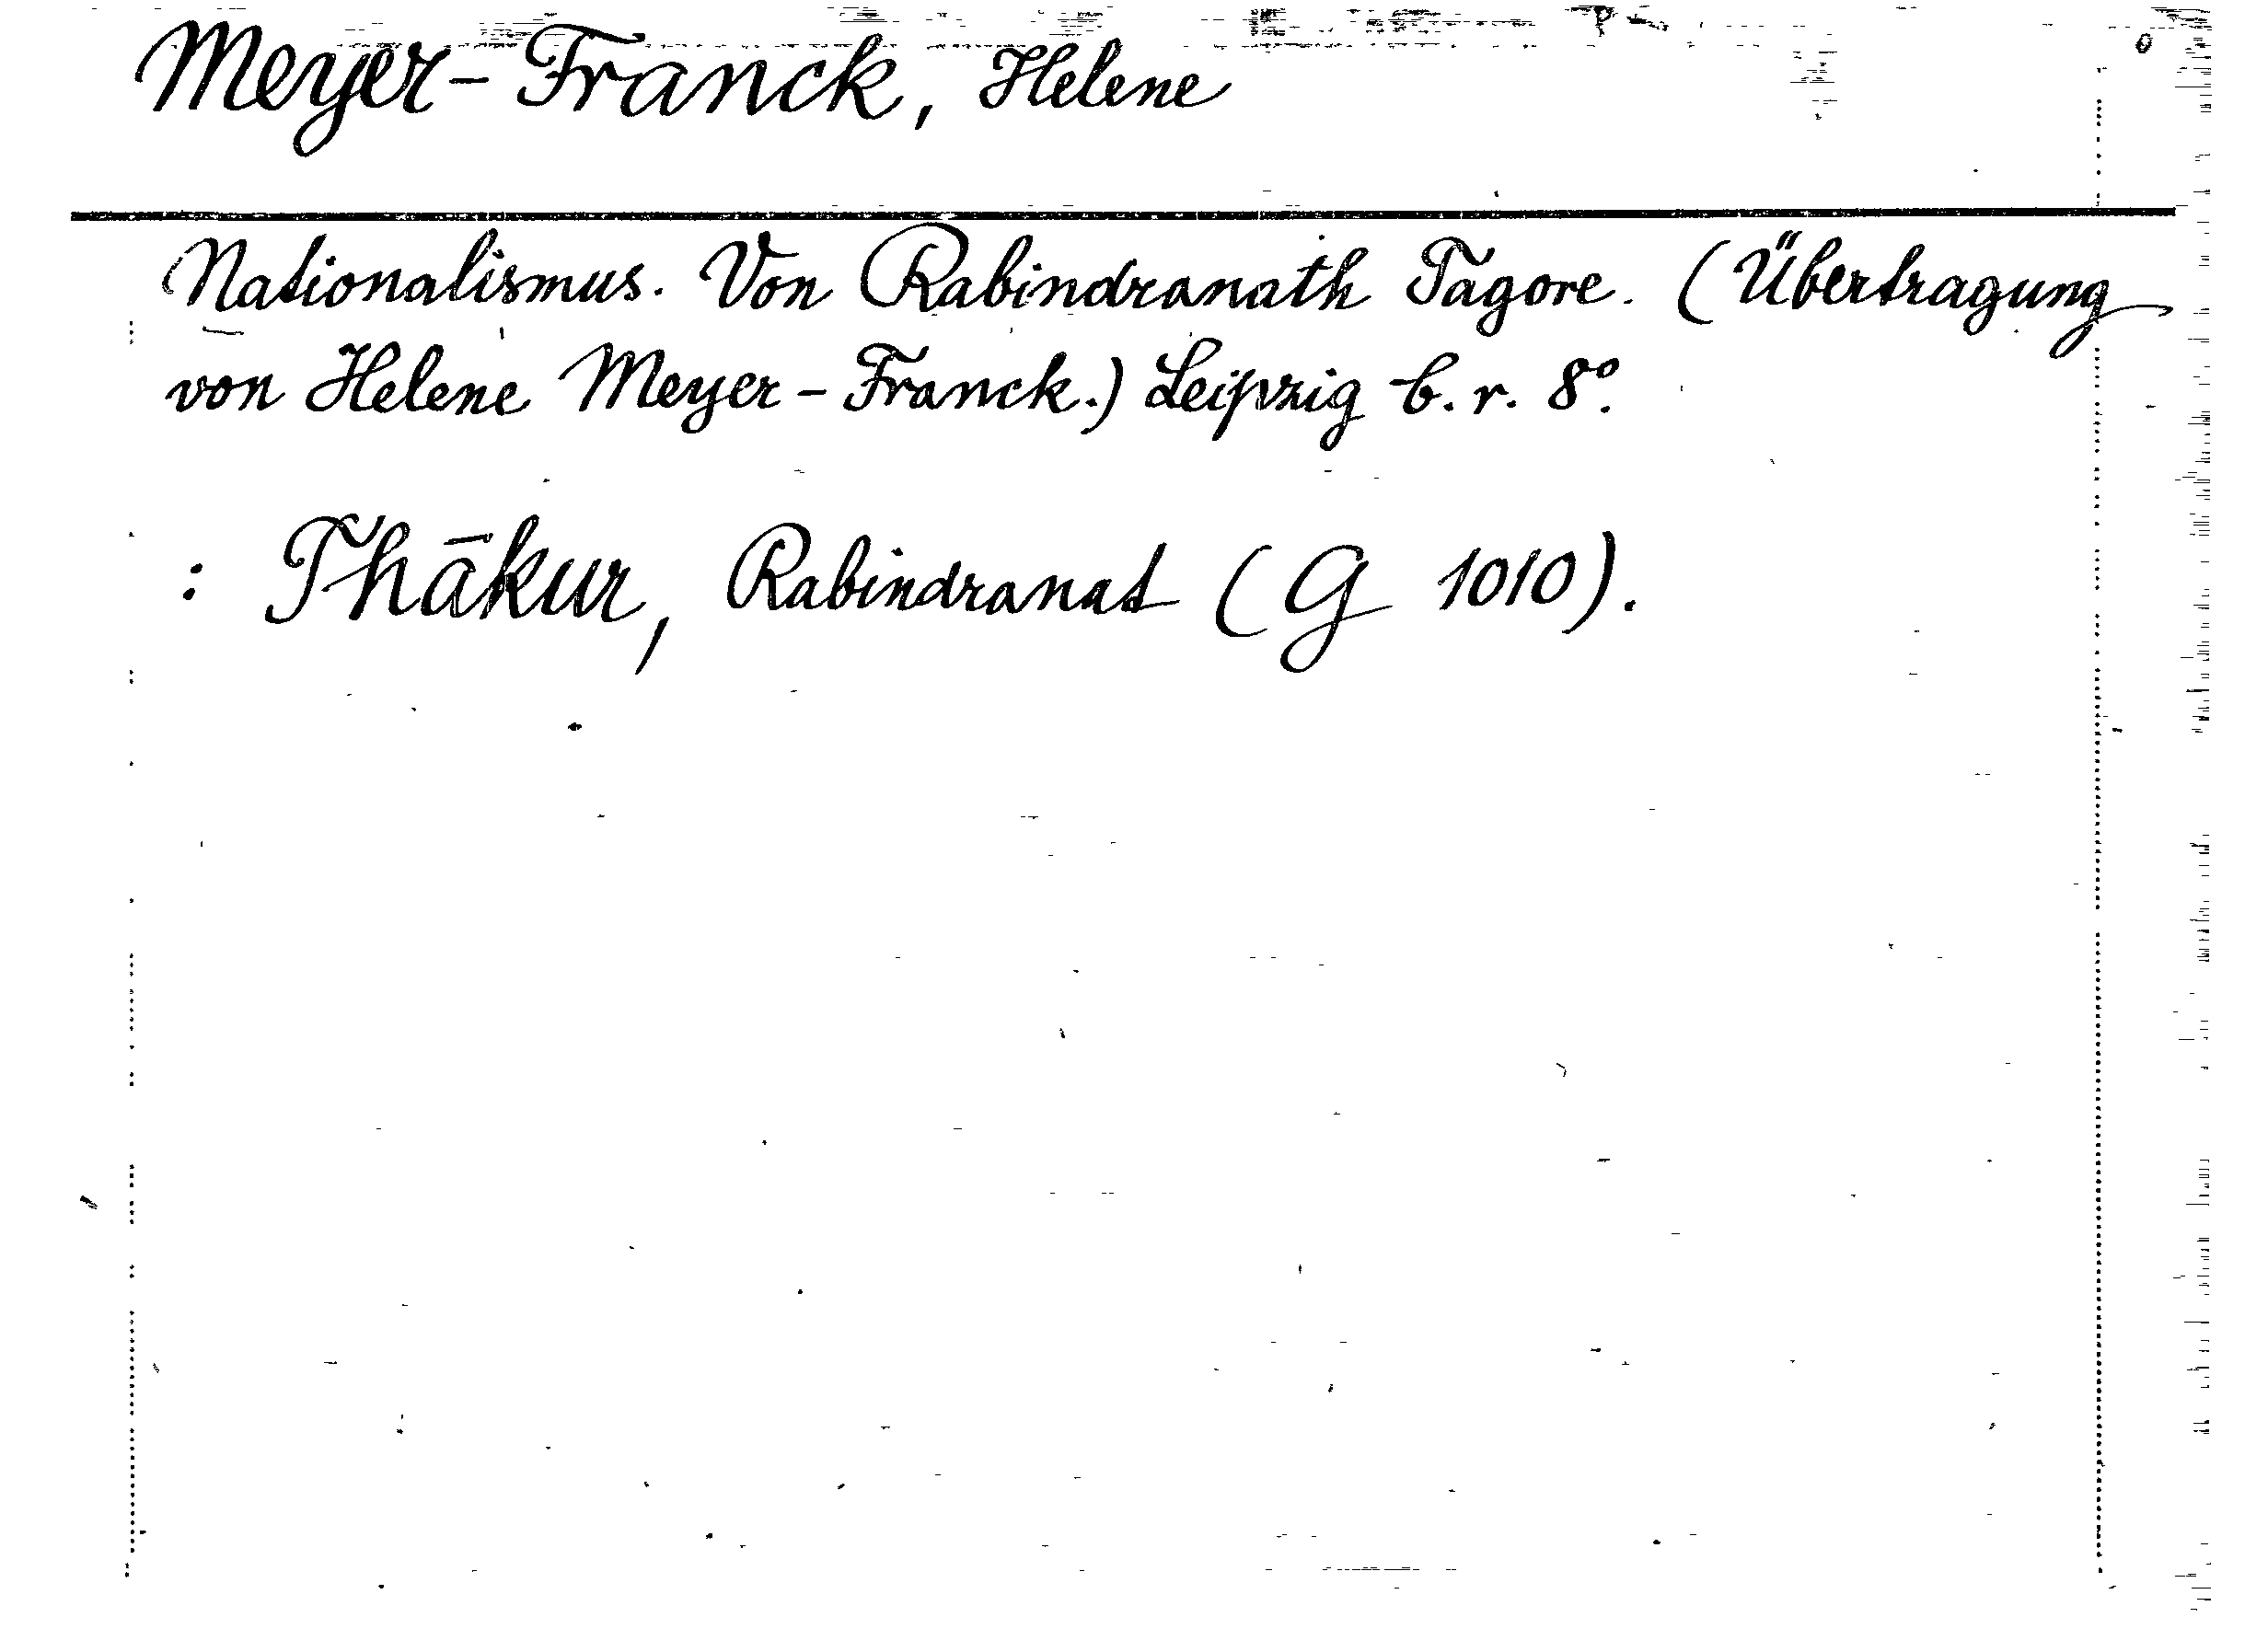 Meyer-Franck, Helene
Nationalismus. Von Rabindranath Tagore. (Übertragung
von Helene Meyer-Franck.) Leipzig b. r. 8°.
: Thākur, Rabindranat (G 1010).